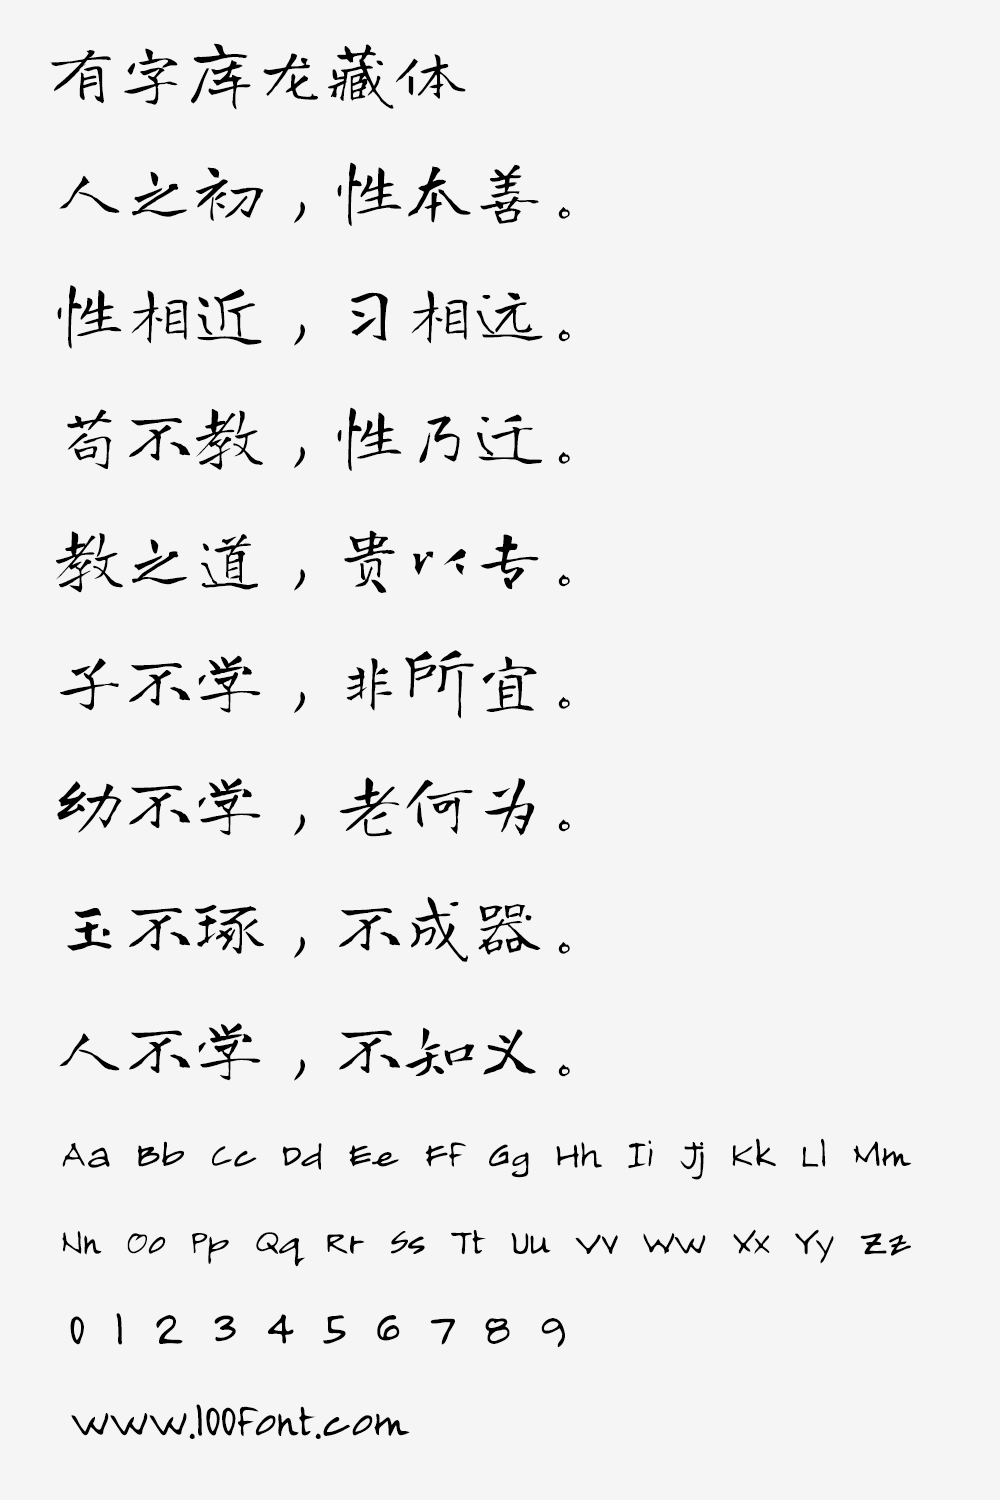 有字库龙藏体
人之初，性本善。
性相近，习相远。
苟不教，性乃迁。
教之道，贵以专。
子不学，非所宜。
幼不学，老何为。
玉不琢，不成器。
人不学，不知义。
Aa Bb Cc Dd Ee Ff Gg Hh Ii Jj Kk Ll Mm
Nn Oo Pp Qq Rr Ss Tt Uu Vv Ww Xx Yy Zz
0 1 2 3 4 5 6 7 8 9
www.100font.com